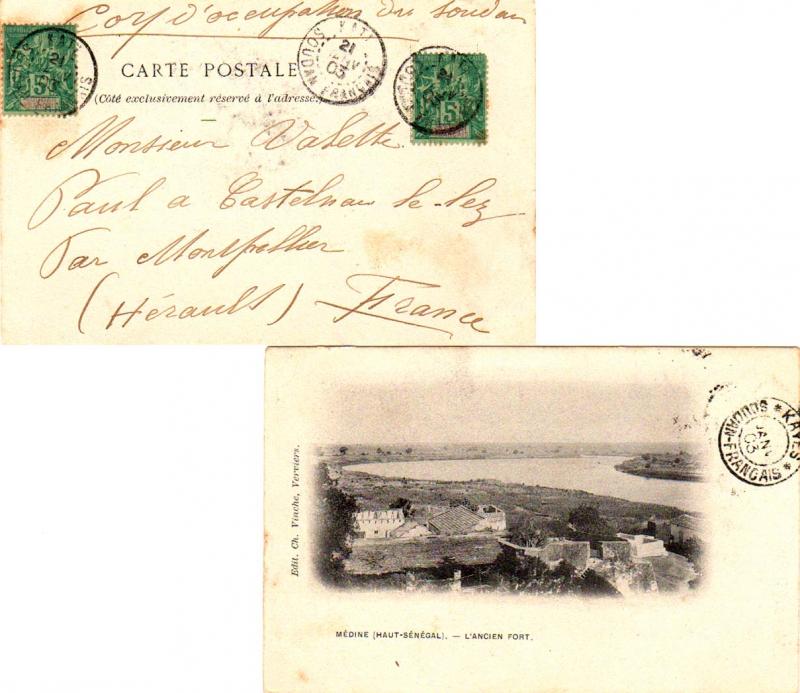 Corps d'occupation du Soudan
CARTE POSTALE
(Côté exclusivement réservé à l'adresse.)
KATI
21
JANV
03
SOUDAN FRANÇAIS
5
5
Monsieur Valette
Paul a Castelnau-le-lez
Par Montpellier
(Hérault) France
Edit. Ch. Vinche, Verviers.
KAYES
JANV
03
SOUDAN-FRANCAIS
MÉDINE (HAUT-SÉNÉGAL). — L'ANCIEN FORT.